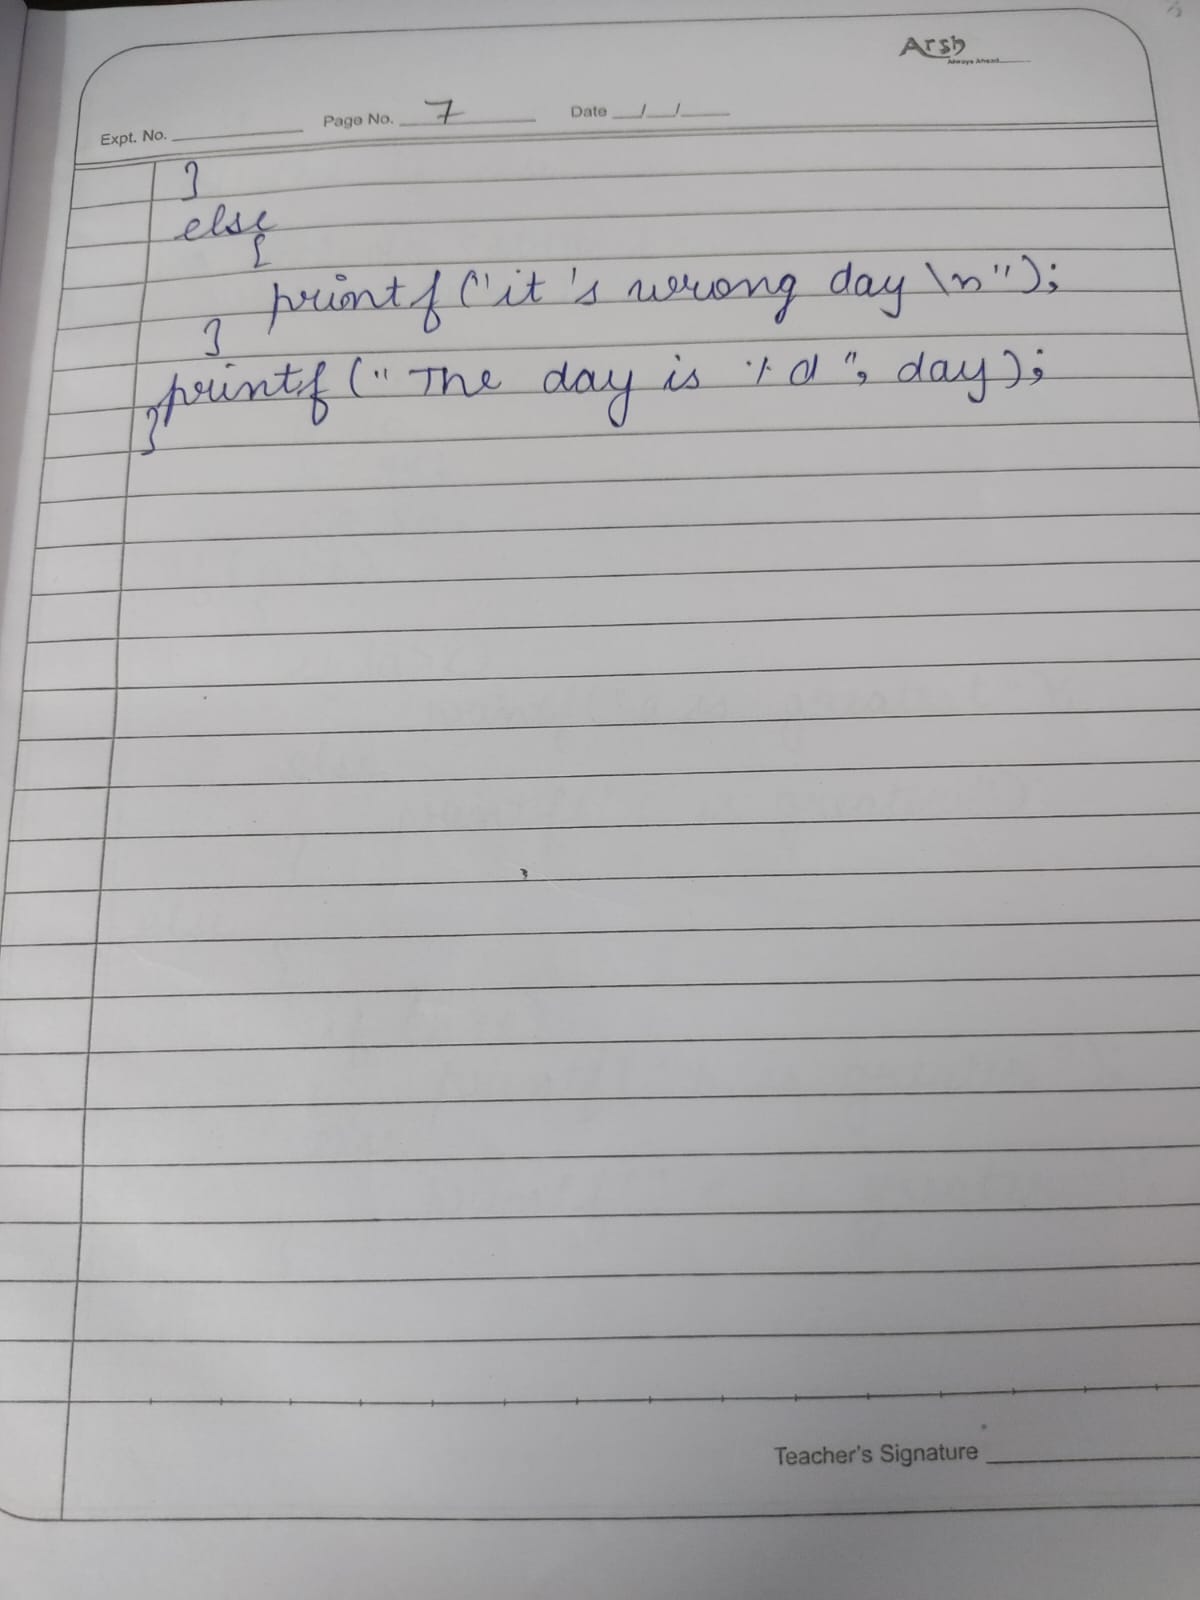 Arsh
Always Ahead
Expt. No.
Page No. 7
Date / /
}
else
{
printf("it's wrong day \n");
}
printf("The day is %d", day);
}
Teacher's Signature